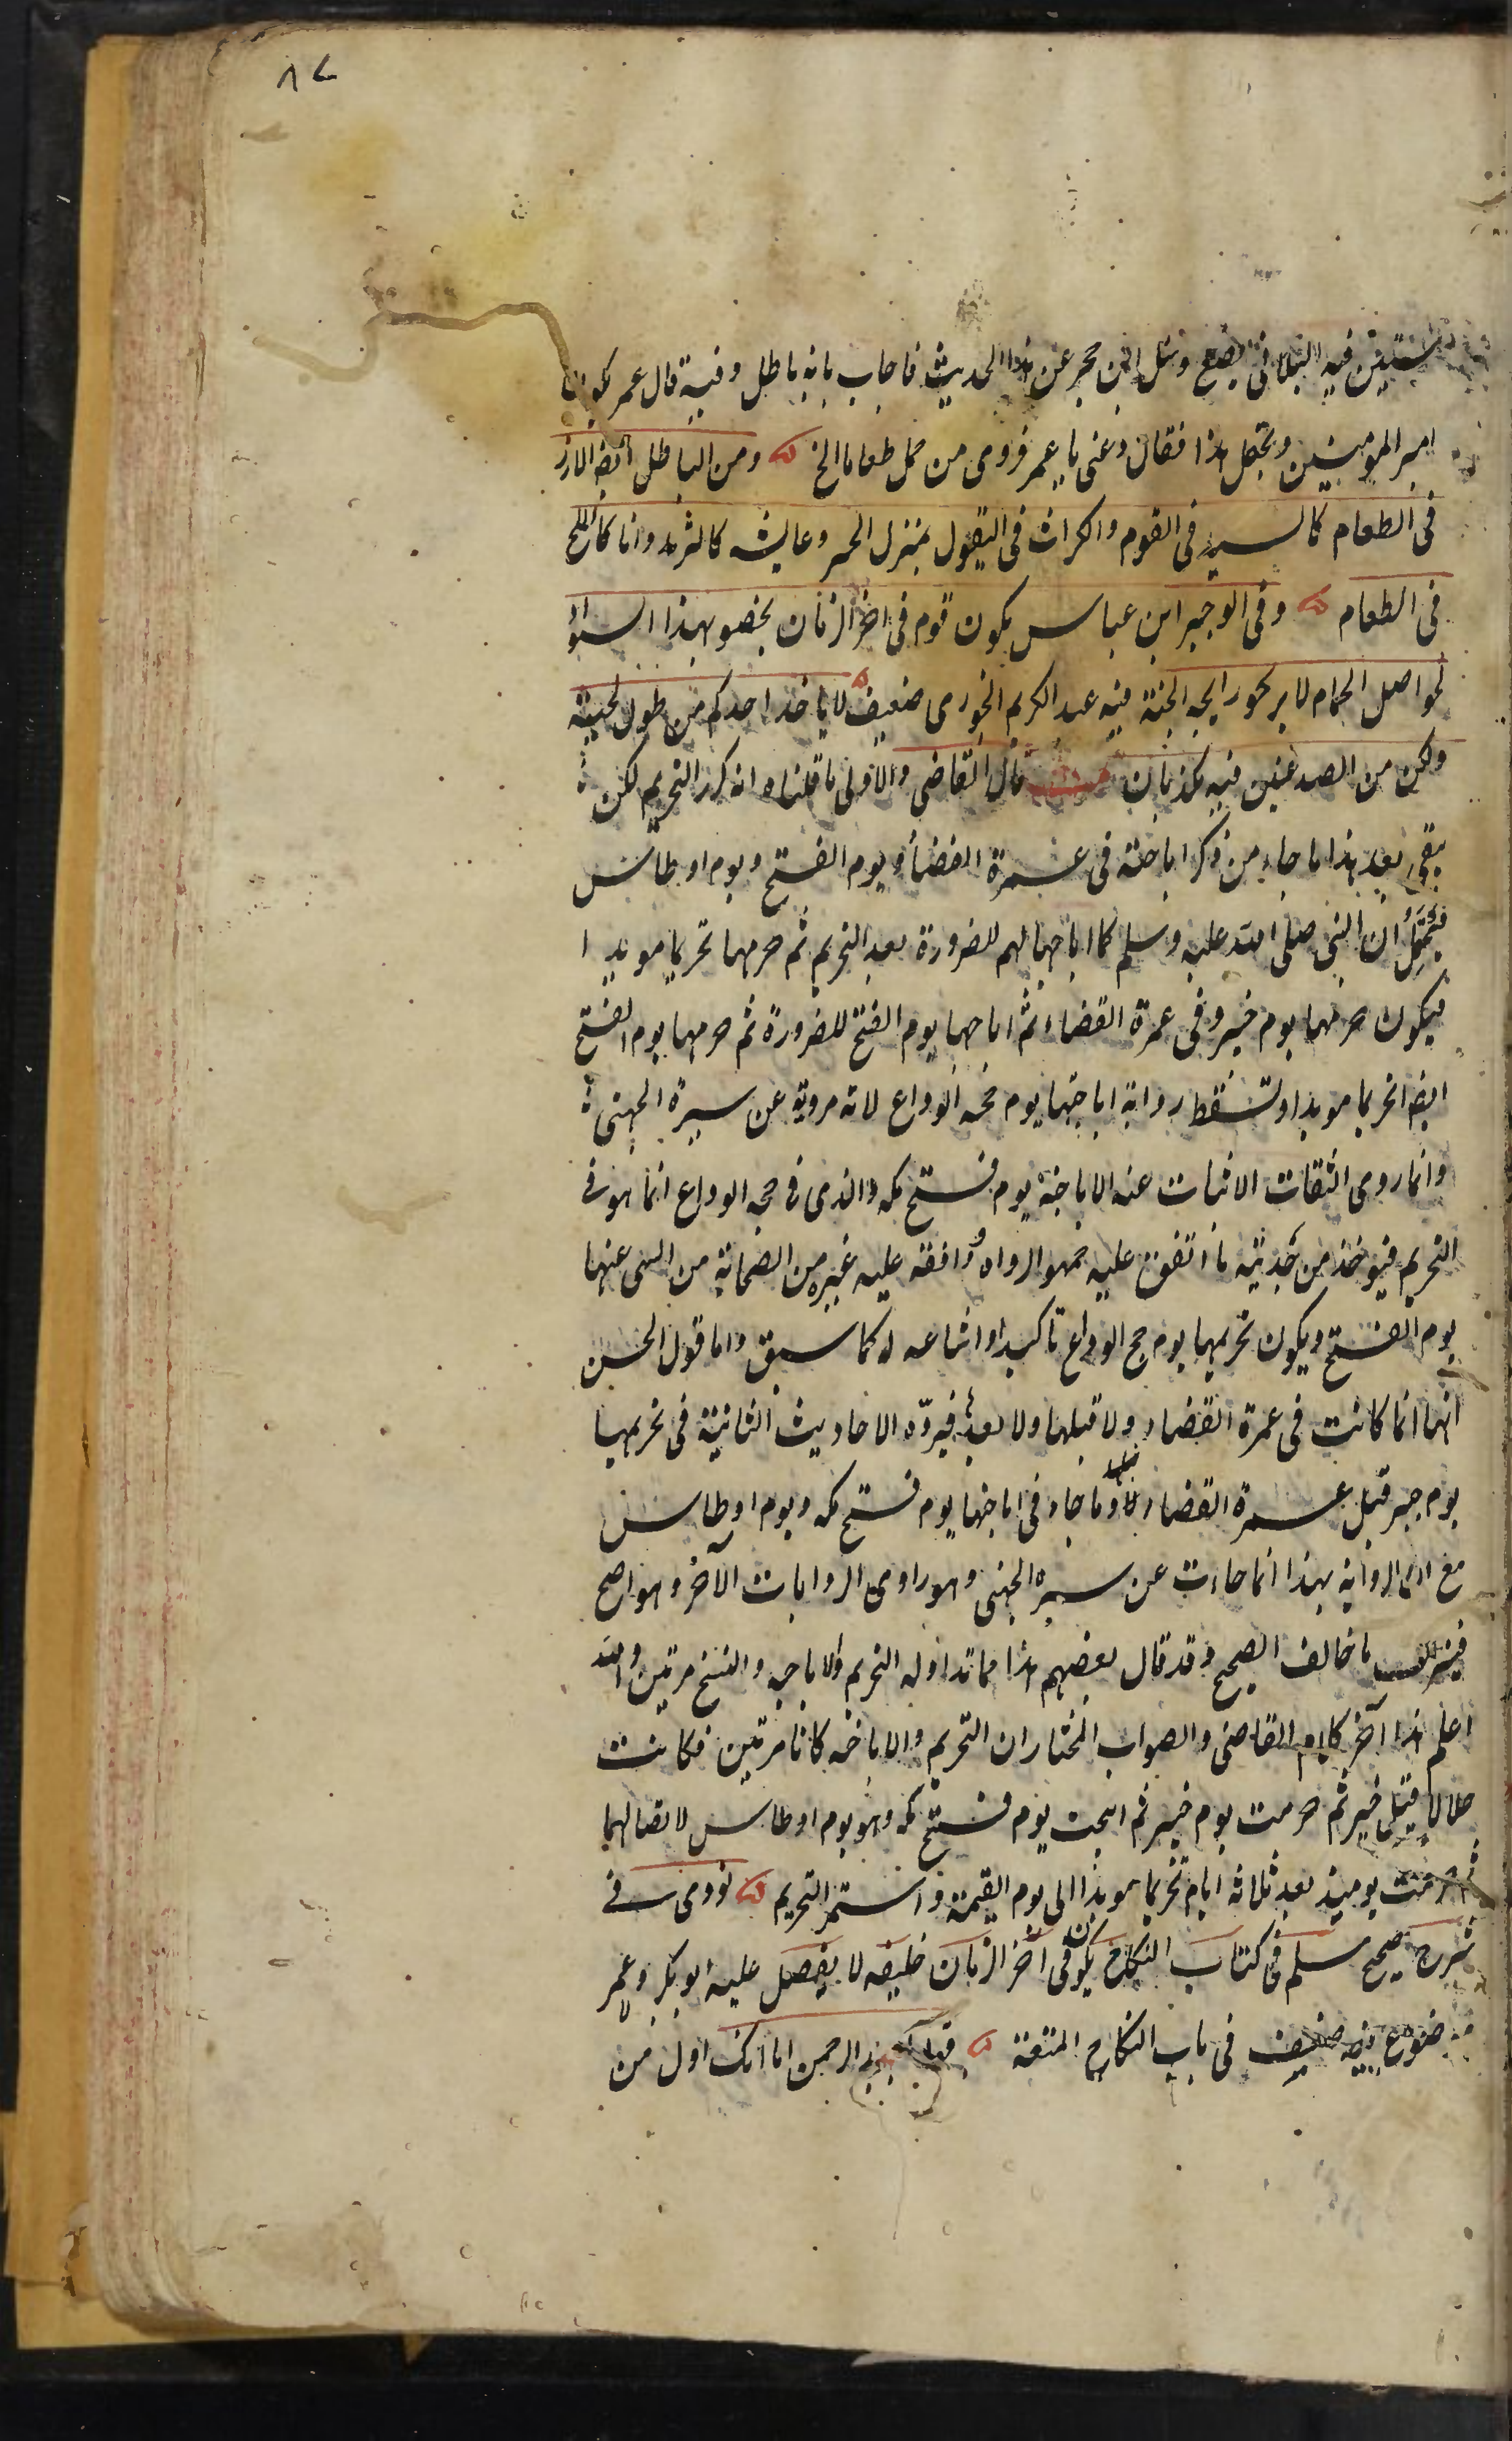 ٨٧
يستبين فيه البلا في بضع وسئل ابن حجر عن هذا الحديث فاجاب بانه باطل وفيه قال عمر
امير المومنين ويحمل هذا فقال دعنى يا عمر فروى من حمل طعاما الخ ومن الباطل ايضا الارز
فى الطعام كالسيد فى القوم والكراث فى البقول بمنزل الخبز وعايشه كالثريد وانا كالملح
فى الطعام وفى الوجيز ابن عباس يكون قوم فى اخر الزمان يخضبو بهذا السواد
كحواصل الحمام لا يريحو رايحه الجنة فيه عبد الكريم الجزرى ضعيف لا ياخذ احدكم من طول لحيته
ولكن من الصدغين فيه كذبان قال القاضى والاولى ما قلناه انه كرر التحريم لكن
يبقى بعد هذا ما جاء من ذكر اباحته فى عمرة القضاء ويوم الفتح ويوم اوطاس
فيحتمل ان النبى صلى الله عليه وسلم كما اباحها لهم للضرورة بعد التحريم ثم حرمها تحريما موبدا
فيكون حرمها يوم خيبر وفى عمرة القضاء ثم اباحها يوم الفتح للضرورة ثم حرمها يوم الفتح
ايضا تحريما موبدا وتسقط رواية اباحتها يوم حجه الوداع لانه مروية عن سبرة الجهنى
وانما روى الثقات الاثبات عنه الاباحة يوم فتح مكه والذى فى حجه الوداع انما هو فى
التحريم فيوخذ من حديثه ما اتفق عليه جمهو الرواه ووافقه عليه غيره من الصحابة من النهى عنها
يوم الفتح ويكون تحريمها يوم حج الوداع تاكيدا واشاعه له كما سبق واما قول الحسن
انها انما كانت فى عمرة القضاء ولا قبلها ولا بعدها فيردّه الاحاديث الثابتة فى تحريمها
يوم خيبر قبل عمرة القضاء وما جاء فى اباحتها يوم فتح مكه ويوم اوطاس
مع ان الرواية بهذا انما جاءت عن سبره الجهنى وهو راوى الروايات الآخر وهو اصح
فيترك ما خالف الصحيح وقد قال بعضهم هذا مما تداوله التحريم والاباحه والنسخ مرتين والله
اعلم هذا آخر كلام القاضى والصواب المختار ان التحريم والاباحه كانا مرتين فكانت
حلالا قبل خيبر ثم حرمت يوم خيبر ثم ابيحت يوم فتح مكه وهو يوم اوطاس لاتصالهما
ثم حرمت يوميذ بعد ثلاثه ايام تحريما موبدا الى يوم القيمة واستمر التحريم نووى فى
شرح صحيح مسلم فى كتاب النكاح يكون فى آخر الزمان خليفه لا يفضل عليه ابو بكر وعمر
موضوع فيه ضعيف فى باب النكاح المتعة الرحمن اما انك اول من